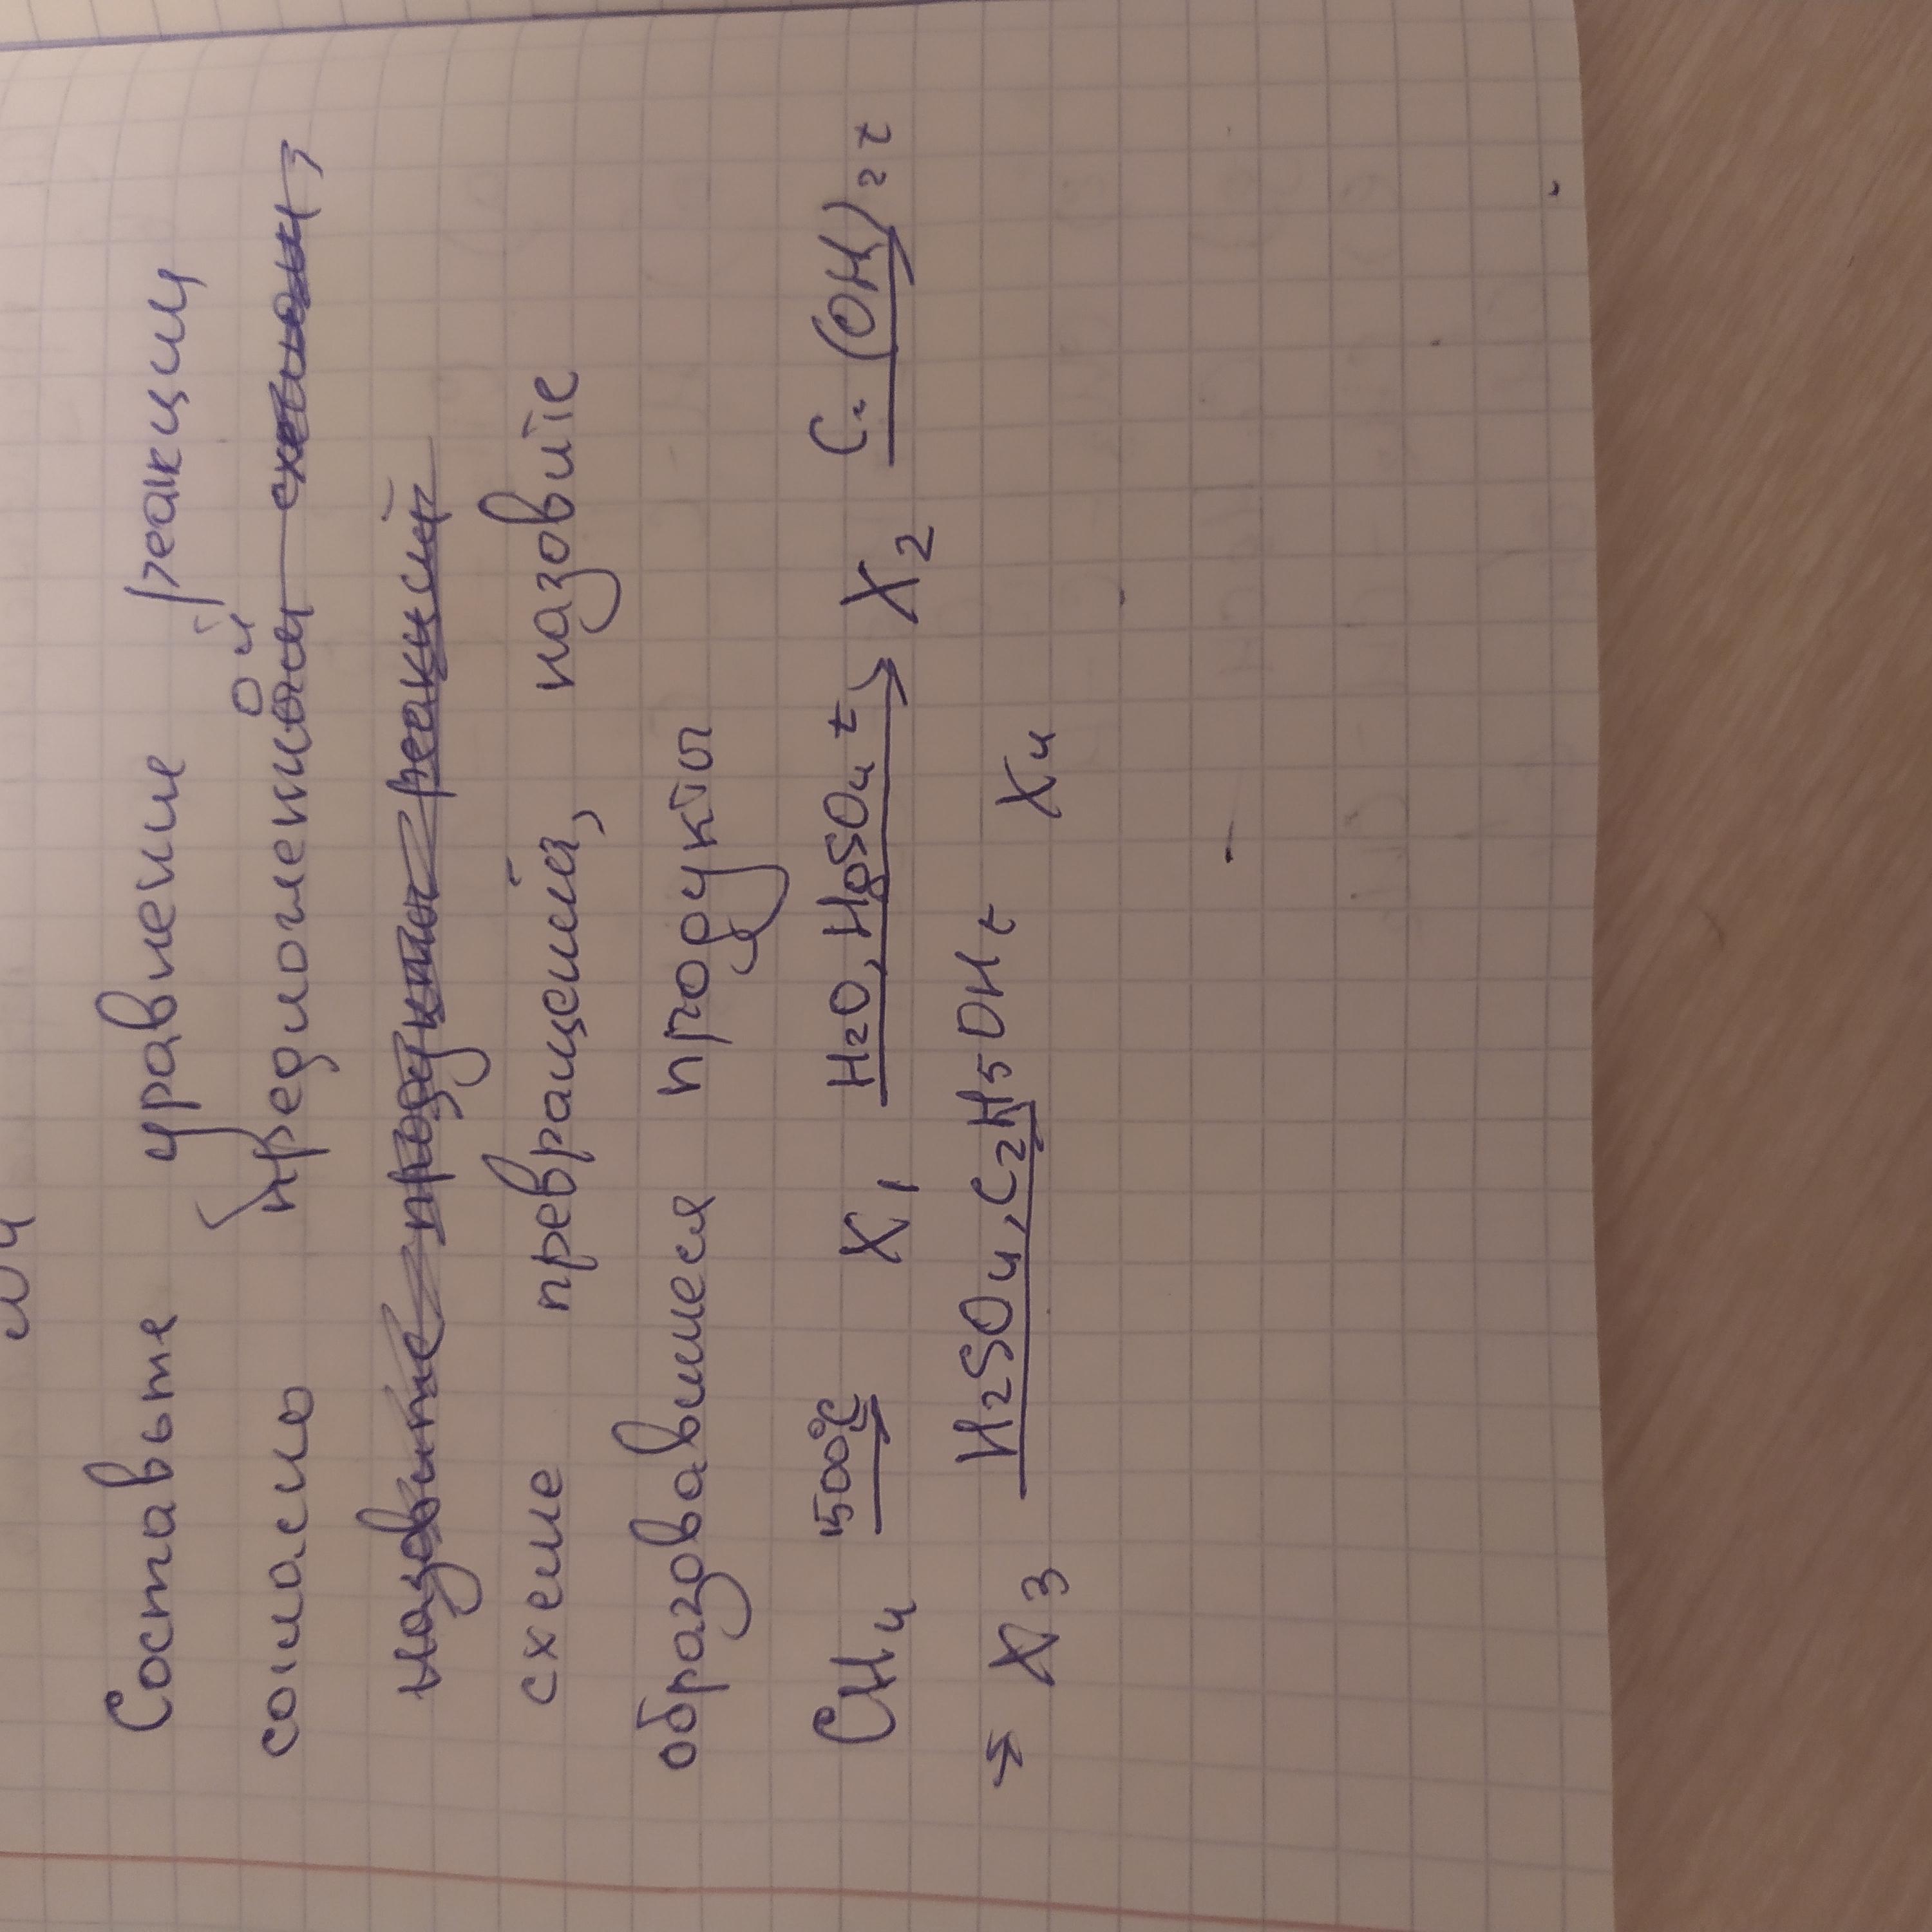 Составьте уравнение реакции
согласно предложенной схемами,
назовите продукты реакций
схеме превращений, назовите
образовавшиеся продукты
CH4 1500°C X1 H2O, HgSO4 t → X2 Cu(OH)2 t
→ X3 H2SO4, C2H5OH t X4